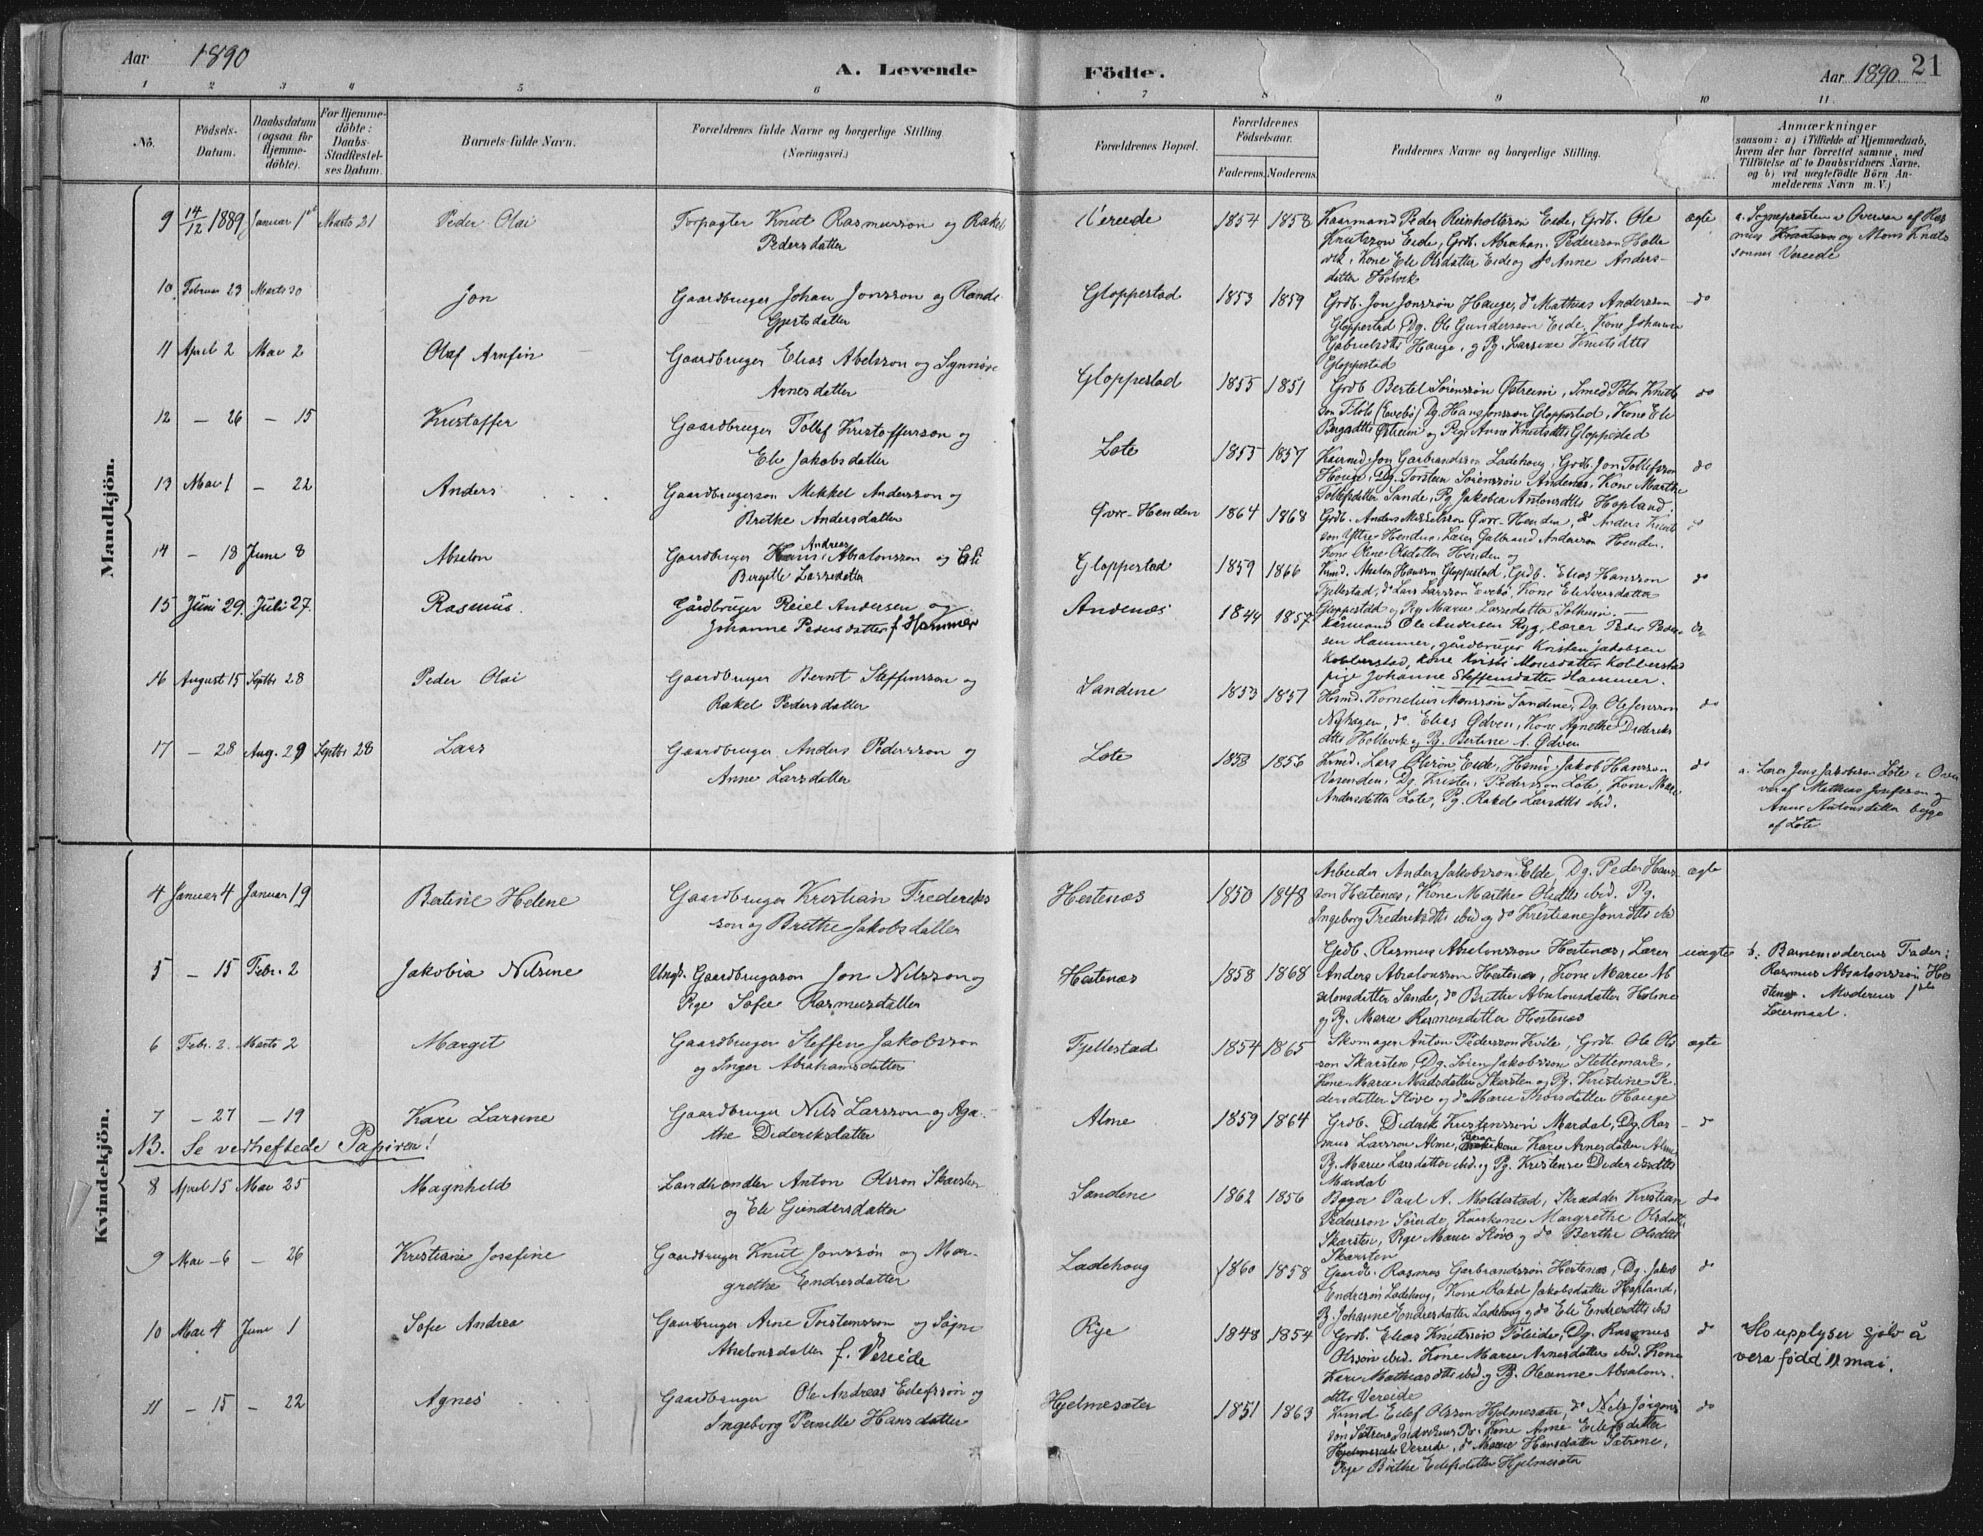 Aar 1890
A. Levende Födte.
Aar 1890. 21
1 2 3 4 5 6 7 8 9 10 11
No.
Födsels-Datum.
Daabsdatum (ogsaa för Hjemmedöbte).
For Hjemmedöbte: Daabs-Stadfæstelses Datum.
Barnets fulde Navn.
Forældrenes fulde Navne og borgerlige Stilling. (Næringsvei.)
Forældrenes Bopæl.
Forældrenes Födselsaar.
Faderens. Moderens.
Faddernes Navne og borgerlige Stilling.
Anmærkninger
saasom: a) i Tilfælde af Hjemmedaab,
hvem der har forrettet samme, med
Tilföielse af to Daabsvidners Navne,
og b) ved uægtefödte Börn An-
melderens Navn m. V.)
Mandkjön.
9 14/12 1889 Januar 1 Marts 21 Peder Olai Forpagter Knut Rasmusson og Rakel
Pedersdatter
Vereide 1854 1858 Kaarmand Peder Reinholtsson Eide, Grdb. Ole
Knutsson Eide, Grdb. Abraham Pedersson Holle
vik, Kone Eli Olsdatter Eide og do Anne Anders-
datter Holvik
ægte a. Sognepresten i Overvær af Ras
mus Knutsson og Mons Knuts
sønner Vereide
10 Februar 23 Marts 30 Jon Gaardbruger Johan Jonsson og Rande
Gjertsdatter
Gloppestad 1853 1859 Grdb. Jon Jonssøn Hauge, do Mathias Andersson
Gloppestad, Dg. Ole Gundersson Eide, Kone Johanne
Gabrielsdtr Hauge, og Pg. Larsine Knutsdtr
Gloppestad
do
11 April 2 Mai 2 Olaf Arnfin Gaardbruger Elias Abelsson og Synnøve
Arnesdatter
Gloppestad 1855 1851 Grdb Bertel Sørenssøn Østreim, Smed Peter Knuts
son Fløte (Evebø) Dg. Hans Jonsson Gloppestad, Kone Eli
Østreim og Pige Anne Knutsdtr Gloppestad
do
12 — 26 — 15 Kristaffer Gaardbruger Tollef Kristoffersson og
Eli Jakobsdatter
Lote 1855 1857 Kaarmd. Jon Garbrandsson Ladehoug, Grdb. Jon Tollefsson
Hauge, Dg. Torstein Sørenssøn Andenes, Kone Marthe
Tollefsdatter Sande, Pg Jakobea Antonsdtr Hopland.
do
13 Mai 1 — 22 Anders Gaardbrugerson Mikkel Andersson og
Brethe Andersdatter
Øvre-Henden 1864 1868 Grdb. Anders Mikkelsson Øvre-Henden, do Anders Knut
son Yttre Henden, Lærer Galbrand Andersson Henden,
Kone Oline Olsdatter Henden og
do
14 — 18 Juni 8 Abselon Gaardbruger Hans Andreas Absalonsson og Eli
Bergitte Larsdatter
Gloppestad 1859 1866 Kmd. Abselon Hansson Gloppestad, Grdb. Elias Hansson
Fjellestad, do Lars Larsson Evebø, Kone Eli Iversdatter
Gloppestad og Pg. Marie Larsdatter Solheim.
do
15 Juni 29. Juli 27. Rasmus. Gårdbruger Reiel Andersen og
Johanne Pedersdatter f. Hammer
Andenæs 1844 1857 Kårmand Ole Andersen Ryg, lærer Peder Peder-
sen Hammer, gårdbruger Kristen Jakobsen
Kobberstad, kone Kristi Monsdatter Kobberstad
pige Johanne Steffensdatter Hammer.
do
16 August 15 Septbr 28 Peder Olai Gaardbruger Bernt Steffensson og
Rakel Pedersdatter
Sandene 1853 1857 Husmd. Kornelius Monssøn Sandene, Dg. Ole Jensson
Nyhagen, do Elias Ødven, Kone Agnethe Dideriks
dtr Hollevik og Pg. Bertine A. Ødven
do
17 — 28 Aug. 29 Septbr 28 Lars Gaardbruger Anders Pedersson og
Anne Larsdatter
Lote 1858 1856 Kmd. Lars Olsson Eide, Husm. Jakob Hansson
Vasenden, Dg. Kristen Pedersson Lote, Kone Mari
Andersdatter Lote, Pg. Rakel Larsdtr ibid.
do a. Lærer Jens Jakobsson Lote i Over
vær af Mathias Josefsson og
Anne Antonsdatter begge
af Lote
Kvindekjön.
4 Januar 4 Januar 19 Bertine Helene Gaardbruger Kristian Frederiks
son og Brethe Jakobsdatter
Hestenæs 1850 1848 Arbeider Anders Jakobsson Eide, Dg. Peder Hans
son Hestenæs, Kone Marthe Olsdtr ibid. Pg.
Ingeborg Frederiksdtr ibid og do Kristiane Jonsdtr ibid
ægte
5 — 15 Febr. 2 Jakobia Nilsine Ungk. Gaardbrugerson Jon Nilsson og
Pige Sofie Rasmusdatter
Hestenæs 1858 1868 Grdb. Rasmus Abselonsson Hestenæs, Lærer
Anders Absalonsson Hestenæs, Kone Marie Ab
salonsdatter Sande, do Brithe Absalonsdatter Holme
og Pg. Marie Rasmusdatter Hestenæs
uægte b. Barnemoderens Fader:
Rasmus Absalonssøn Hes
tenæs. Moderens 1ste
Leiermaal.
6 Febr. 2. Marts 2 Margit Gaardbruger Steffen Jakobsson
og Inger Abrahamsdatter
Fjellestad 1854 1865 Skomager Anton Pedersson Kvile, Grdb. Ole Ols
son Skarsten, Dg. Søren Jakobsson Slettemark,
Kone Marie Madsdatter Skarsten og Pg. Kristine Pe-
dersdatter Støve og do Marie Thorsdatter Hauge
ægte
7 — 27 — 19 Kari Larsine Gaardbruger Nils Larsson og Aga-
the Dideriksdatter
Alme 1859 1864 Grdb. Diderik Kristenssøn Mardal, Dg. Ras
mus Larsson Alme, Kari Arnesdatter Alme
Pg. Marie Larsdatter ibid. og Pg. Kristense Dideriksdtr
Mardal
do
NB. Se vedheftede Papiren!
8 April 15 Mai 25 Magnhild Landhandler Anton Olsson Skarsten
og Eli Gundersdatter
Sandene 1862 1856 Bygger Paul A. Moldestad, Skrædder Kristian
Pedersson Søreide, Kaarkone Margrethe Olsdatter
Skarsten, Pige Marie Støve og do Berthe Olsdtr
Skarsten
do
9 Mai 6 — 26 Kristiane Josefine Gaardbruger Knut Jonssøn og Mar-
grethe Endresdatter
Ladehoug 1860 1858 Gaardb. Rasmus Garbrandssøn Hestenæs, Dg. Jakob
Endresøn Ladehoug, Kone Rakel Jakobsdatter Hopland,
Pg. Johanne Endresdatter Ladehoug og do Eli Endresdtr ibid
do
10 Mai 4 Juni 1 Sofie Andrea Gaardbruger Arne Torstensson og Søgni
Abselonsdatter f. Vereide
Rye 1848 1854 Grdb. Elias Knutssøn Føleide, Dg. Rasmus
Olssøn ibid. Kone Marie Arnesdatter ibid. Kone
Kari Mathiasdtr ibid og Pg. Oleanne Absalons
dtr Vereide
do Ho upplyser sjølv å
vera född 11 mai.
11 — 15 — 22 Agnes Gaardbruger Ole Andreas Eilefssøn og
Ingeborg Pernille Hansdatter
Hjelmesæter 1851 1863 Kmd Eilef Olsson Hjelmesæter, do Nils Jørgens
søn Sætrene, Kone Anne Eilefsdatter
Hjelmesæter Vereide, do Marie Hansdatter Sætrene,
Pige Brithe Eilefsdatter Hjelmesæter
do